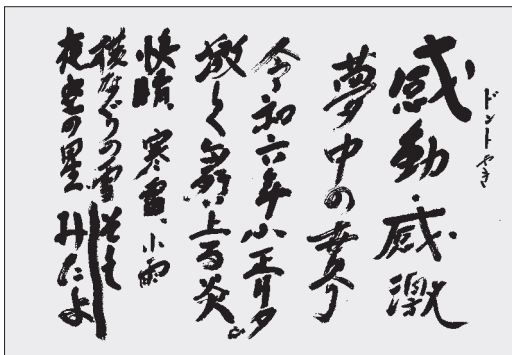 ドントやき
感動・感激
夢中の
令和六年小正月夕
激しく舞い上る炎
快晴、寒雷、小雨
横なぐりの雪
夜空の星みたよ